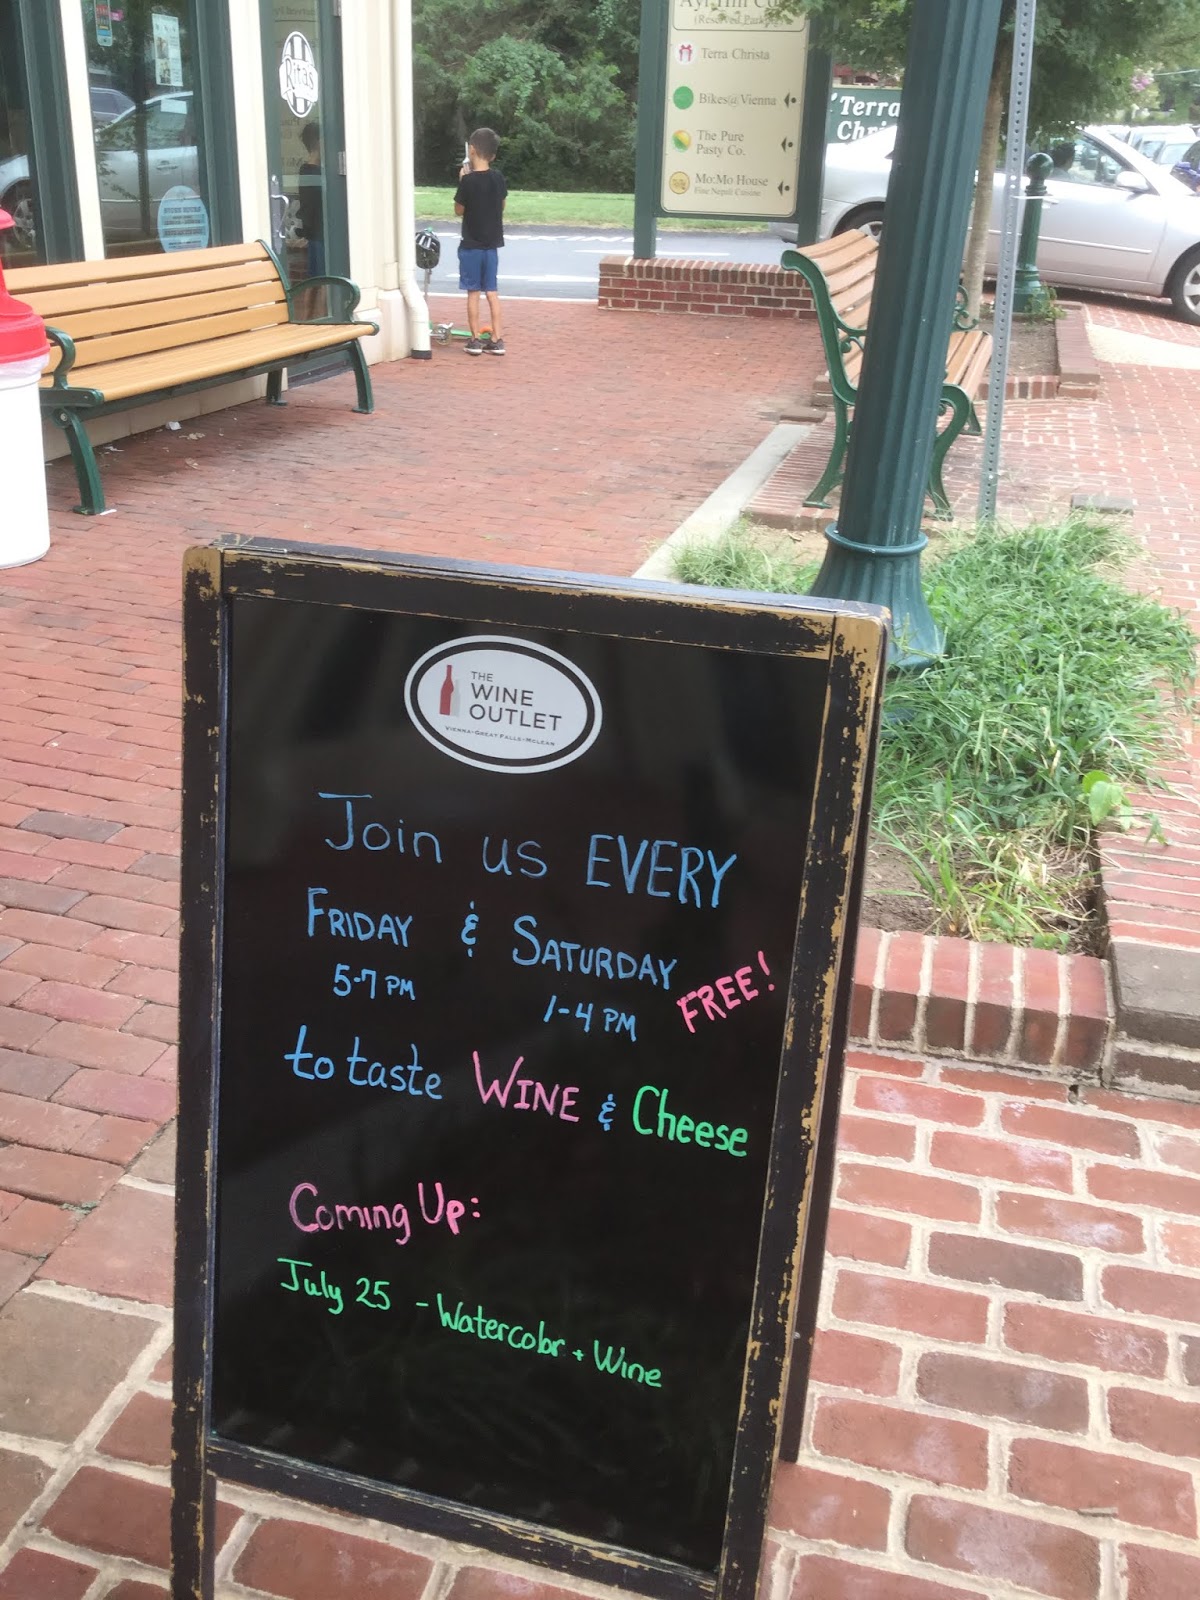 Ayr Hill
(Reserved Parking
Terra Christa
Bikes@Vienna
The Pure
Pasty Co.
Mo:Mo House
Fine Nepali Cuisine
Terra
Chri
Rita's
THE
WINE
OUTLET
VIENNA • GREAT FALLS • MCLEAN
Join us EVERY
FRIDAY & SATURDAY
5-7 PM 1-4 PM FREE!
to taste WINE & Cheese
Coming Up:
July 25 - Watercolor + Wine